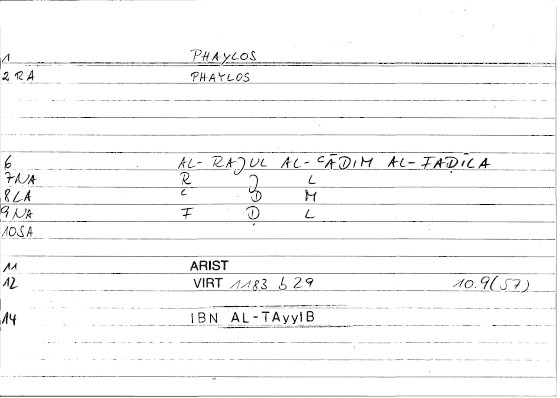 1 PHAYLOS
2 RA PHAYLOS
6 AL- RAJUL AL- ʿĀDIM AL- FAḌĪLA
7NA R J L
8LA ʿ D M
9NA F Ḍ L
10SA
11 ARIST
12 VIRT 1183 b 29 10.9(57)
14 IBN AL-TAyyIB